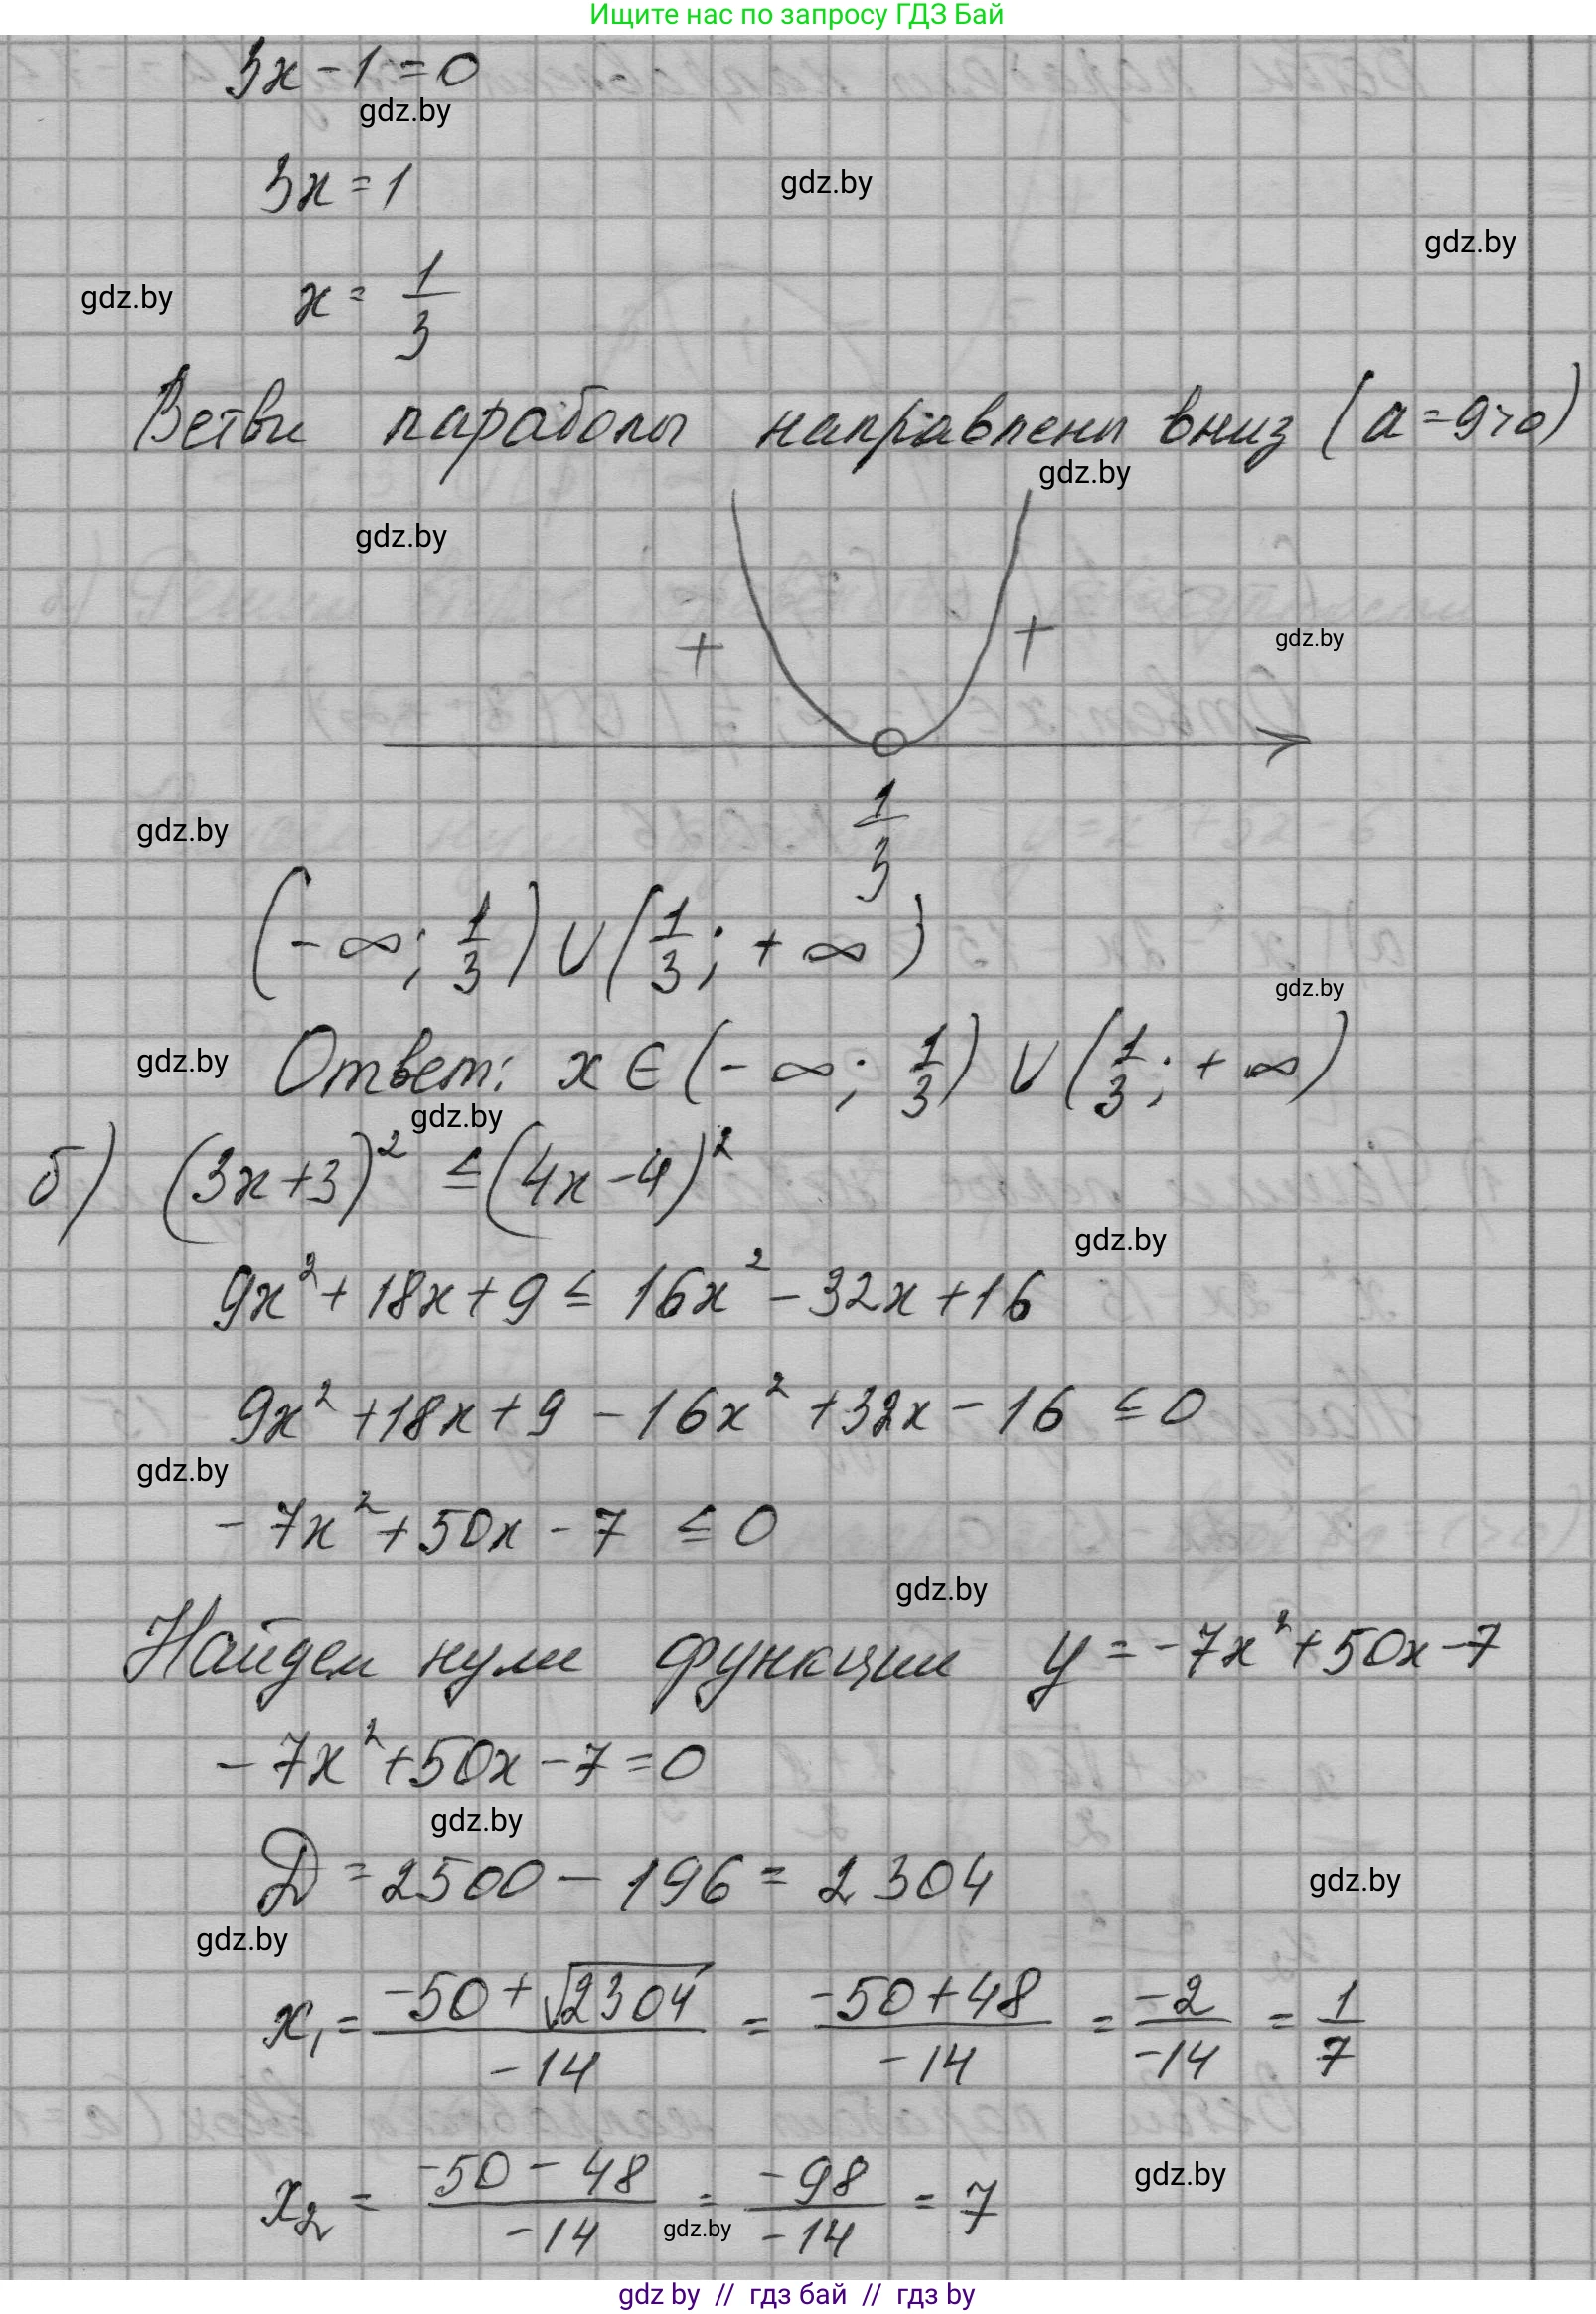 Ищите нас по запросу ГДЗ Бай
3x - 1 = 0
gdz.by
3x = 1
gdz.by
gdz.by
gdz.by
x = 1/3
Ветви параболы направлены вниз (a = 9 > 0)
gdz.by
gdz.by
+ +
gdz.by
1/3
gdz.by
(-∞; 1/3) ∪ (1/3; +∞)
gdz.by
gdz.by
Ответ: x ∈ (-∞; 1/3) ∪ (1/3; +∞)
gdz.by
б) (3x+3)² ≤ (4x-4)²
gdz.by
9x² + 18x + 9 ≤ 16x² - 32x + 16
9x² + 18x + 9 - 16x² + 32x - 16 ≤ 0
gdz.by
-7x² + 50x - 7 ≤ 0
gdz.by
Найдем нули функции y = -7x² + 50x - 7
-7x² + 50x - 7 = 0
gdz.by
D = 2500 - 196 = 2304
gdz.by
gdz.by
x₁ = (-50 + √2304)/-14 = (-50 + 48)/-14 = -2/-14 = 1/7
gdz.by
x₂ = (-50 - 48)/-14 = -98/-14 = 7
gdz.by
gdz by // гдз бай // гдз by